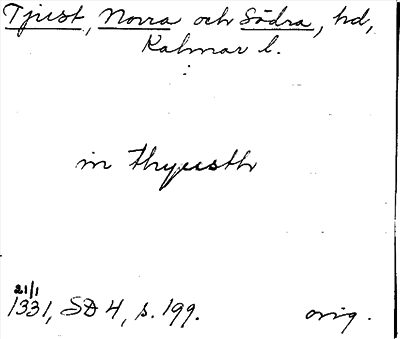 Tjust, Norra och Södra, hd,
Kalmar l.
:
in thyusth
21/1
1331, SD 4, s. 199. orig.